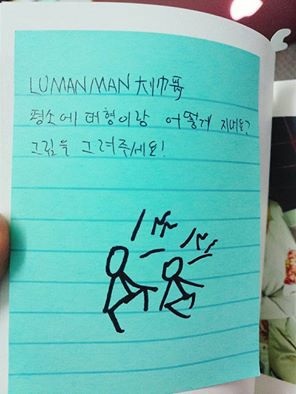 LUMANMAN 大帅哥
평소에 대형이랑 어떻게 지내요?
그림을 그려주세요!